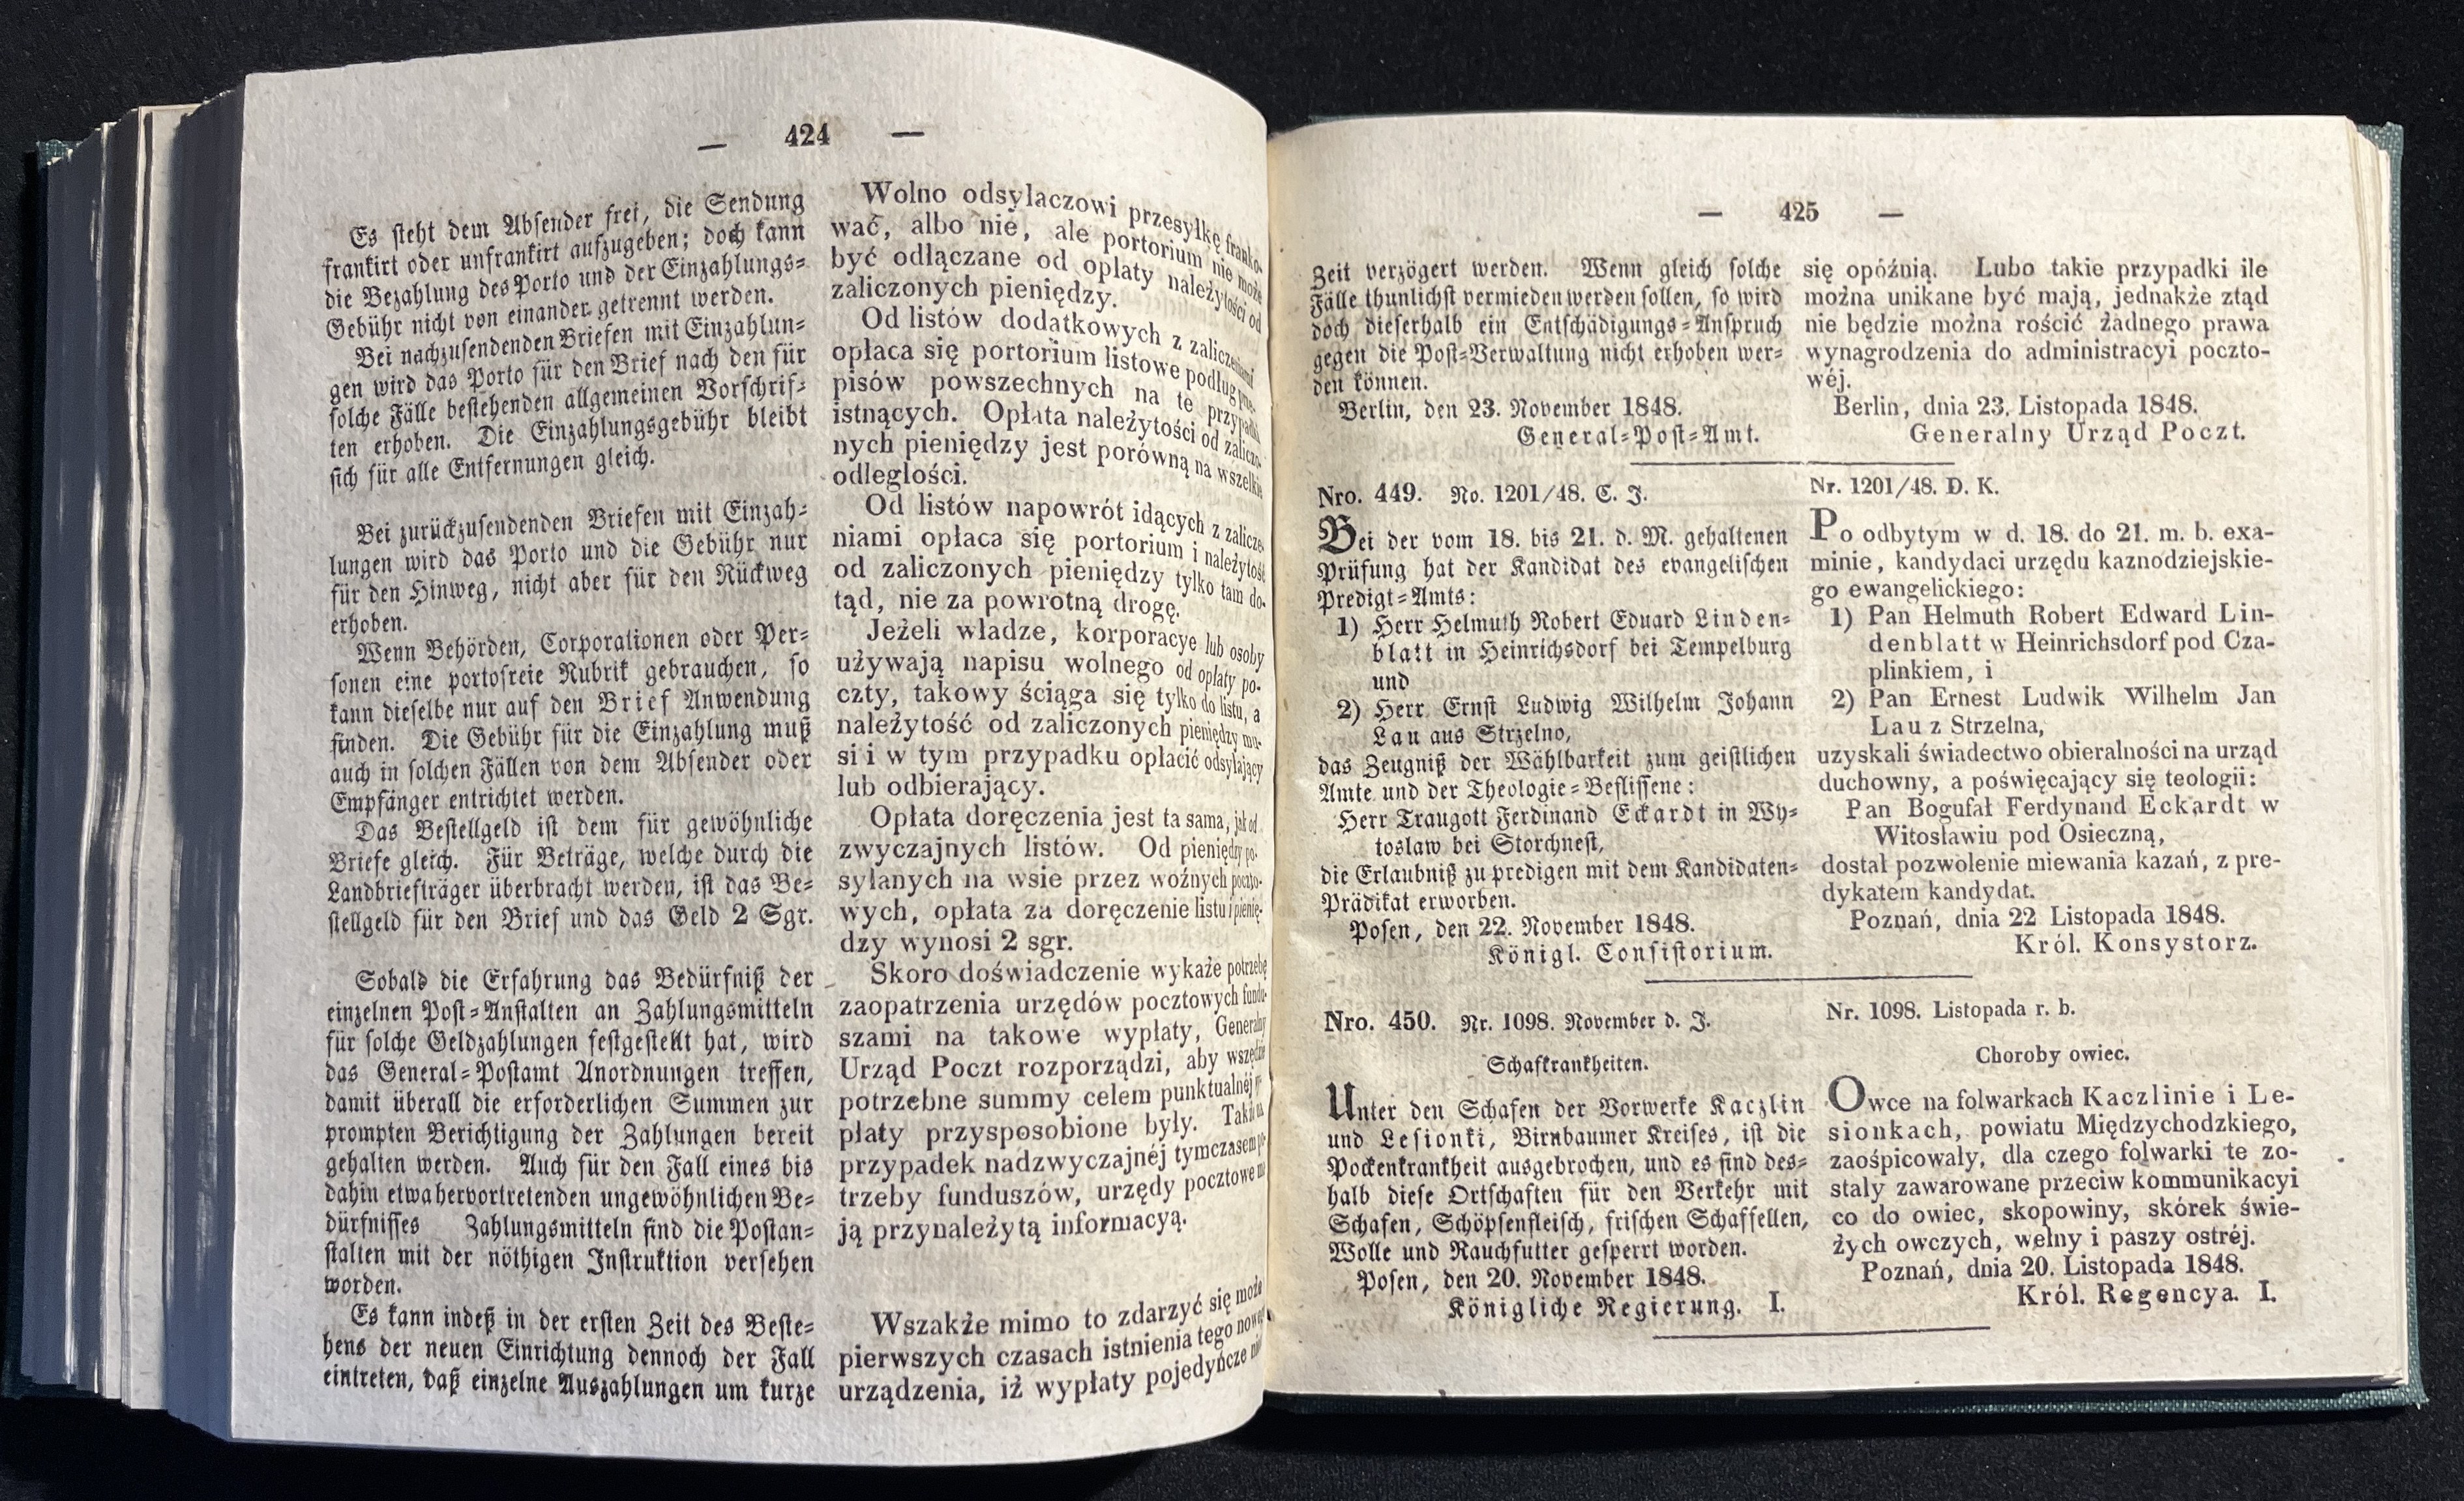 — 424 —
Es steht dem Absender frei, die Sendung
frankirt oder unfrankirt aufzugeben; doch kann
die Bezahlung des Porto und der Einzahlungs=
Gebühr nicht von einander getrennt werden.
Bei nachzusendenden Briefen mit Einzahlun=
gen wird das Porto für den Brief nach den für
solche Fälle bestehenden allgemeinen Vorschrif=
ten erhoben. Die Einzahlungsgebühr bleibt
sich für alle Entfernungen gleich.
Bei zurückzusendenden Briefen mit Einzah=
lungen wird das Porto und die Gebühr nur
für den Hinweg, nicht aber für den Rückweg
erhoben.
Wenn Behörden, Corporationen oder Per=
sonen eine portofreie Rubrik gebrauchen, so
kann dieselbe nur auf den Brief Anwendung
finden. Die Gebühr für die Einzahlung muß
auch in solchen Fällen von dem Absender oder
Empfänger entrichtet werden.
Das Bestellgeld ist dem für gewöhnliche
Briefe gleich. Für Beträge, welche durch die
Landbriefträger überbracht werden, ist das Be=
stellgeld für den Brief und das Geld 2 Sgr.
Sobald die Erfahrung das Bedürfniß der
einzelnen Post=Anstalten an Zahlungsmitteln
für solche Geldzahlungen festgestellt hat, wird
das General=Postamt Anordnungen treffen,
damit überall die erforderlichen Summen zur
prompten Berichtigung der Zahlungen bereit
gehalten werden. Auch für den Fall eines bis
dahin etwa hervortretenden ungewöhnlichen Be=
dürfnisses Zahlungsmitteln sind die Postan=
stalten mit der nöthigen Instruktion versehen
worden.
Es kann indeß in der ersten Zeit des Beste=
hens der neuen Einrichtung dennoch der Fall
eintreten, daß einzelne Auszahlungen um kurze
Wolno odsyłaczowi przesyłkę franko-
wać, albo nie, ale portorium nie może
być odłączane od opłaty należytości od
zaliczonych pieniędzy.
Od listów dodatkowych z zaliczeniami
opłaca się portorium listowe podług prze-
pisów powszechnych na te przypadki
istnących. Opłata należytości od zaliczo-
nych pieniędzy jest porówną na wszelkie
odległości.
Od listów napowrót idących z zalicze-
niami opłaca się portorium i należytość
od zaliczonych pieniędzy tylko tam do-
tąd, nie za powrotną drogę.
Jeżeli władze, korporacye lub osoby
używają napisu wolnego od opłaty po-
czty, takowy ściąga się tylko do listu, a
należytość od zaliczonych pieniędzy mu-
si i w tym przypadku opłacić odsyłający
lub odbierający.
Opłata doręczenia jest ta sama, jak od
zwyczajnych listów. Od pieniędzy po-
syłanych na wsie przez woźnych poczto-
wych, opłata za doręczenie listu i pienię-
dzy wynosi 2 sgr.
Skoro doświadczenie wykaże potrzebę
zaopatrzenia urzędów pocztowych fundu-
szami na takowe wypłaty, Generalny
Urząd Poczt rozporządzi, aby wszędzie
potrzebne summy celem punktualnéj
płaty przysposobione były. Także na
przypadek nadzwyczajnéj tymczasem po-
trzeby funduszów, urzędy pocztowe ma-
ją przynależytą informacyą.
Wszakże mimo to zdarzyć się może
pierwszych czasach istnienia tego nowego
urządzenia, iż wypłaty pojedyńcze
— 425 —
Zeit verzögert werden. Wenn gleich solche
Fälle thunlichst vermieden werden sollen, so wird
doch dieserhalb ein Entschädigungs=Anspruch
gegen die Post=Verwaltung nicht erhoben wer=
den können.
Berlin, den 23. November 1848.
General=Post=Amt.
się opóźnią. Lubo takie przypadki ile
można unikane być mają, jednakże ztąd
nie będzie można rościć żadnego prawa
wynagrodzenia do administracyi poczto-
wéj.
Berlin, dnia 23. Listopada 1848.
Generalny Urząd Poczt.
Nro. 449. No. 1201/48. C. J.
Bei der vom 18. bis 21. d. M. gehaltenen
Prüfung hat der Kandidat des evangelischen
Predigt=Amts:
1) Herr Helmuth Robert Eduard Linden=
blatt in Heinrichsdorf bei Tempelburg
und
2) Herr Ernst Ludwig Wilhelm Johann
Lau aus Strzelno,
das Zeugniß der Wählbarkeit zum geistlichen
Amte und der Theologie=Beflissene:
Herr Traugott Ferdinand Eckardt in Wy=
toslaw bei Storchnest,
die Erlaubniß zu predigen mit dem Kandidaten=
Prädikat erworben.
Posen, den 22. November 1848.
Königl. Consistorium.
Nr. 1201/48. D. K.
Po odbytym w d. 18. do 21. m. b. exa-
minie, kandydaci urzędu kaznodziejskie-
go ewangelickiego:
1) Pan Helmuth Robert Edward Lin-
denblatt w Heinrichsdorf pod Cza-
plinkiem, i
2) Pan Ernest Ludwik Wilhelm Jan
Lau z Strzelna,
uzyskali świadectwo obieralności na urząd
duchowny, a poświęcający się teologii:
Pan Bogufał Ferdynand Eckardt w
Witosławiu pod Osieczną,
dostał pozwolenie miewania kazań, z pre-
dykatem kandydat.
Poznań, dnia 22 Listopada 1848.
Król. Konsystorz.
Nro. 450. Nr. 1098. November d. J.
Schafkrankheiten.
Unter den Schafen der Vorwerke Kaczlin
und Lesionki, Birnbaumer Kreises, ist die
Pockenkrankheit ausgebrochen, und es sind des=
halb diese Ortschaften für den Verkehr mit
Schafen, Schöpsenfleisch, frischen Schaffellen,
Wolle und Rauchfutter gesperrt worden.
Posen, den 20. November 1848.
Königliche Regierung. I.
Nr. 1098. Listopada r. b.
Choroby owiec.
Owce na folwarkach Kaczlinie i Le-
sionkach, powiatu Międzychodzkiego,
zaośpicowały, dla czego folwarki te zo-
stały zawarowane przeciw kommunikacyi
co do owiec, skopowiny, skórek świe-
żych owczych, wełny i paszy ostréj.
Poznań, dnia 20. Listopada 1848.
Król. Regencya. I.